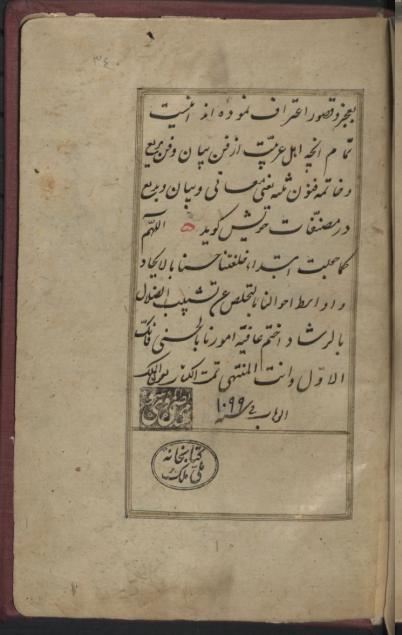 بعجز و قصور اعتراف نموده اند اینست
تمام آنچه اهل عربیت از فن بیان و فن بدیع
و خاتمه فنون ثلثه یعنی معانی و بیان و بدیع
در مصنفات خویش کوید اللهم
کما جعلت ابتداء خلقتنا حسنا بالایجاد
و اواسط احوالنا بالتخلص عن الضلال
بالرشاد اختم عاقبة امورنا بالحسنی فانک
الاول وانت المنتهی تمت الکتاب بعون الملک
الوهاب فی سنه ۱۰۹۹
کتابخانه
ملی ملک